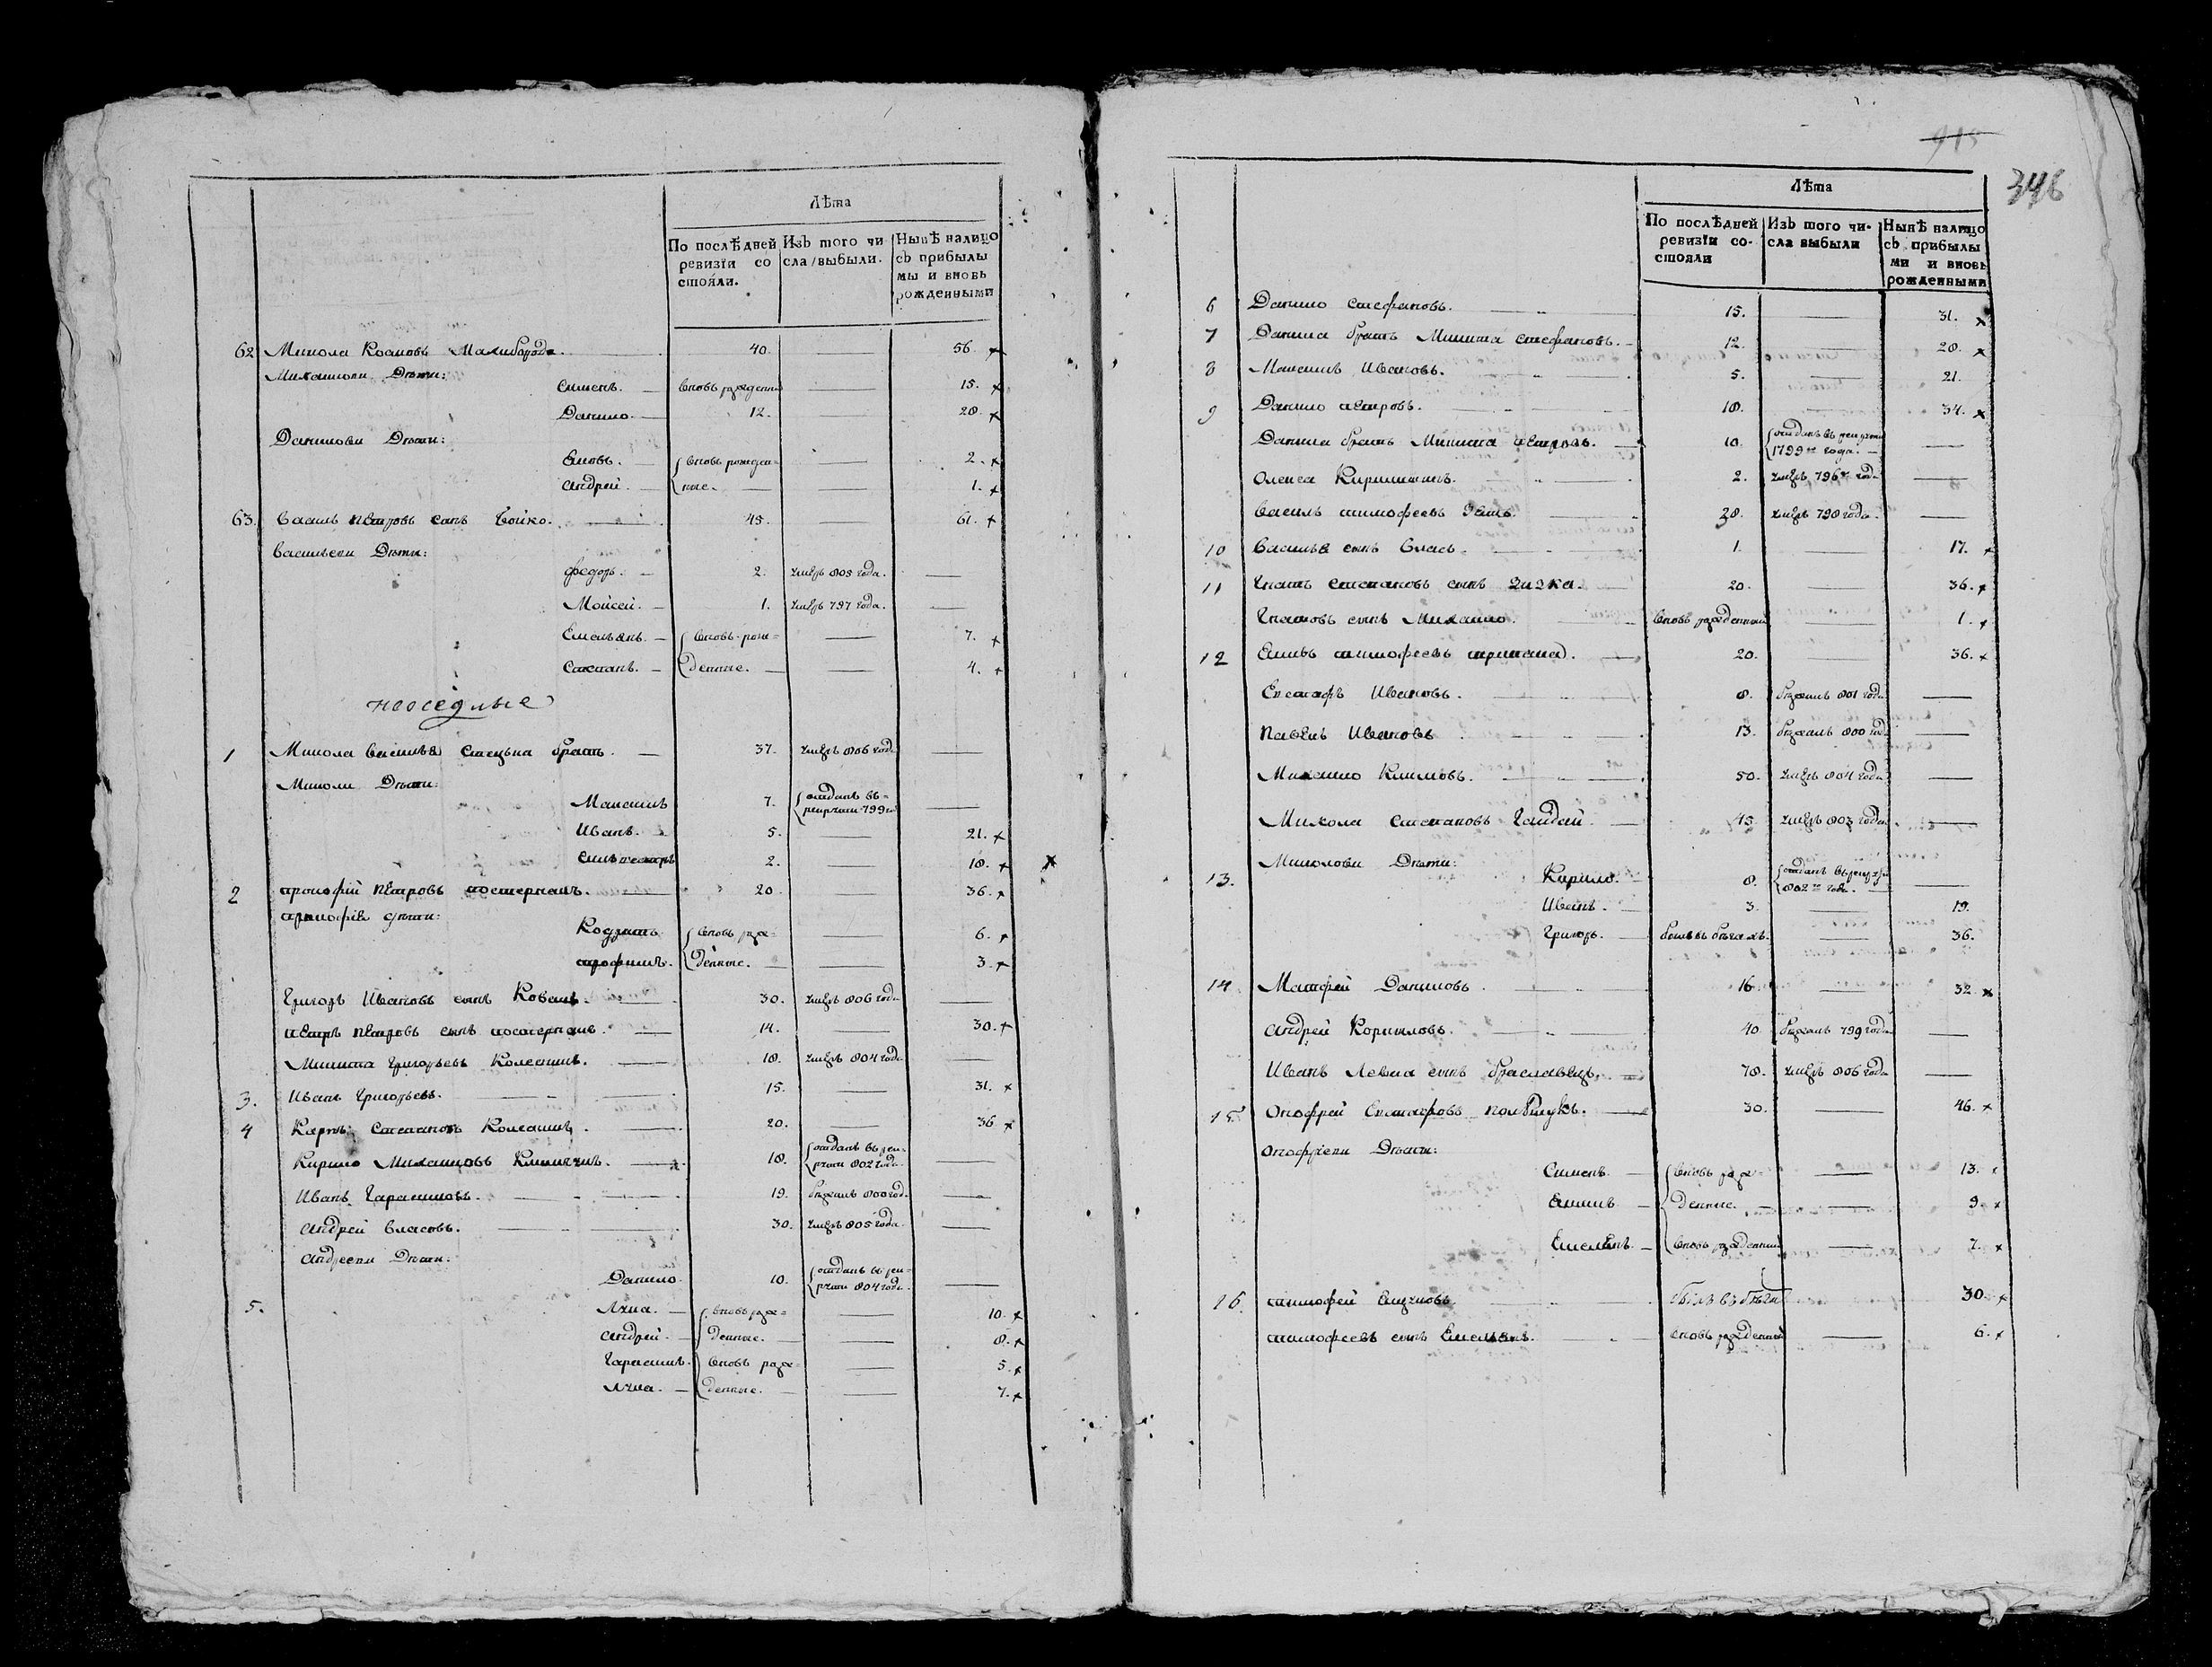 Лѣта
По послѣдней ревизïи со стояли.
Изъ того чи сла выбыли.
Нынѣ налицо съ прибылы мы и вновь рожденными
62 Микола Малиборода. 40. — 56. ×
Михаилови Дѣти:
Сименъ. — вновь рожденн — 15. ×
Данило. — 12. — 28. ×
Данилови Дѣти:
Яковъ. — вновь рожден — 2. ×
Андрей. — ные. — 1. ×
63. Василь Петровъ сынъ Бойко. 45. — 61. ×
Васильеви Дѣти:
Федоръ. — 2. умеръ 805 года. —
Мойсей. — 1. умеръ 797 года. —
Емельянъ. — вновь рож= — 7. ×
Степанъ. — денные. — 4. ×
неоседлые
1 Микола Васильев Стецька братъ. — 37. умеръ 806 года —
Миколи Дѣти:
Максимъ 7. отданъ въ рекрути 799 го —
Иванъ. 5. — 21. ×
2. — 18. ×
2 Прокофий Петровъ Постернакъ. — 20 — 36. ×
Прокофiя дѣти:
Кодратъ вновь рож= — 6. ×
Трофимъ. денные. — 3. ×
Григоръ Ивановъ сынъ Коваль. 30. умеръ 806 года —
Петръ Петровъ сынъ Постернакъ. 14. — 30. ×
Микита Григорьевъ Колесникъ. 18. умеръ 804 года —
3. Иванъ Григорьевъ. 15. — 31. ×
4 Карпъ Степановъ Колесникъ. 20. — 36 ×
Кирило Михайловъ 18. отданъ въ рек= рути 802 года. —
Иванъ Гарасимовъ. 19. бежалъ 800 год. —
Андрей Власовъ. 30. умеръ 805 года. —
Андрееви Дѣти:
Данило. 10. отданъ въ рек= рути 804 года. —
5. Лука. — вновь рож= — 10. ×
Андрей. — денные. — 8. ×
Гарасимъ. вновь рож= — 5. ×
Лука. — денные. — 7. ×
915
346
Лѣта
По послѣдней ревизïи со- стояли
Изъ того чи- сла выбыли
Нынѣ налицо съ прибылы ми и вновь рожденными
6 Данило Стефановъ. 15. — 31. ×
7 Данила братъ Микита Стефановъ. 12. — 28. ×
8 Максимъ Ивановъ. 5. — 21.
9 Данило Петровъ. 18. — 34. ×
Данила братъ Микита Петровъ. 10. отданъ въ рекрути 1799 го года. —
Олекса 2. умеръ 796 го года
Василь Тимофеевъ 28. умеръ 798 года. —
10 Васильѧ сынъ Власъ. 1. — 17. ×
11 Игнатъ Степановъ сынъ 20. — 36. ×
Игнатовъ сынъ Михайло. вновь рожденный — 1. ×
12 Тимофеевъ 20. — 36. ×
Евстафъ Ивановъ. 8. бежалъ 801 года —
Павелъ Ивановъ 13. бежалъ 800 года —
Михайло Климовъ. 50. умеръ 804 года —
Микола Степановъ Гайдай. 45. умеръ 803 года. —
Миколови Дѣти:
13. Кирило. 8. отданъ въ рекру 802 го года. —
Иванъ. 3. — 19.
Григоръ. былъ въ бегахъ. — 36.
14 Матфей Даниловъ. 16 — 32 ×
Андрей Корниловъ. 40. бежалъ 799 года —
Иванъ Левка сынъ Браславецъ. 78. умеръ 806 года —
15 Онофрей Евстафовъ Полѣщукъ. 30. — 46. ×
Онофреви Дѣти:
Сименъ. — вновь рож= — 13. ×
Якимъ. — денные. — 9. ×
Емельянъ. — вновь рожденный — 7. ×
16. Тимофей былъ въ бегах 30. ×
Тимофеевъ сынъ Емельянъ. вновь рожденный — 6. ×